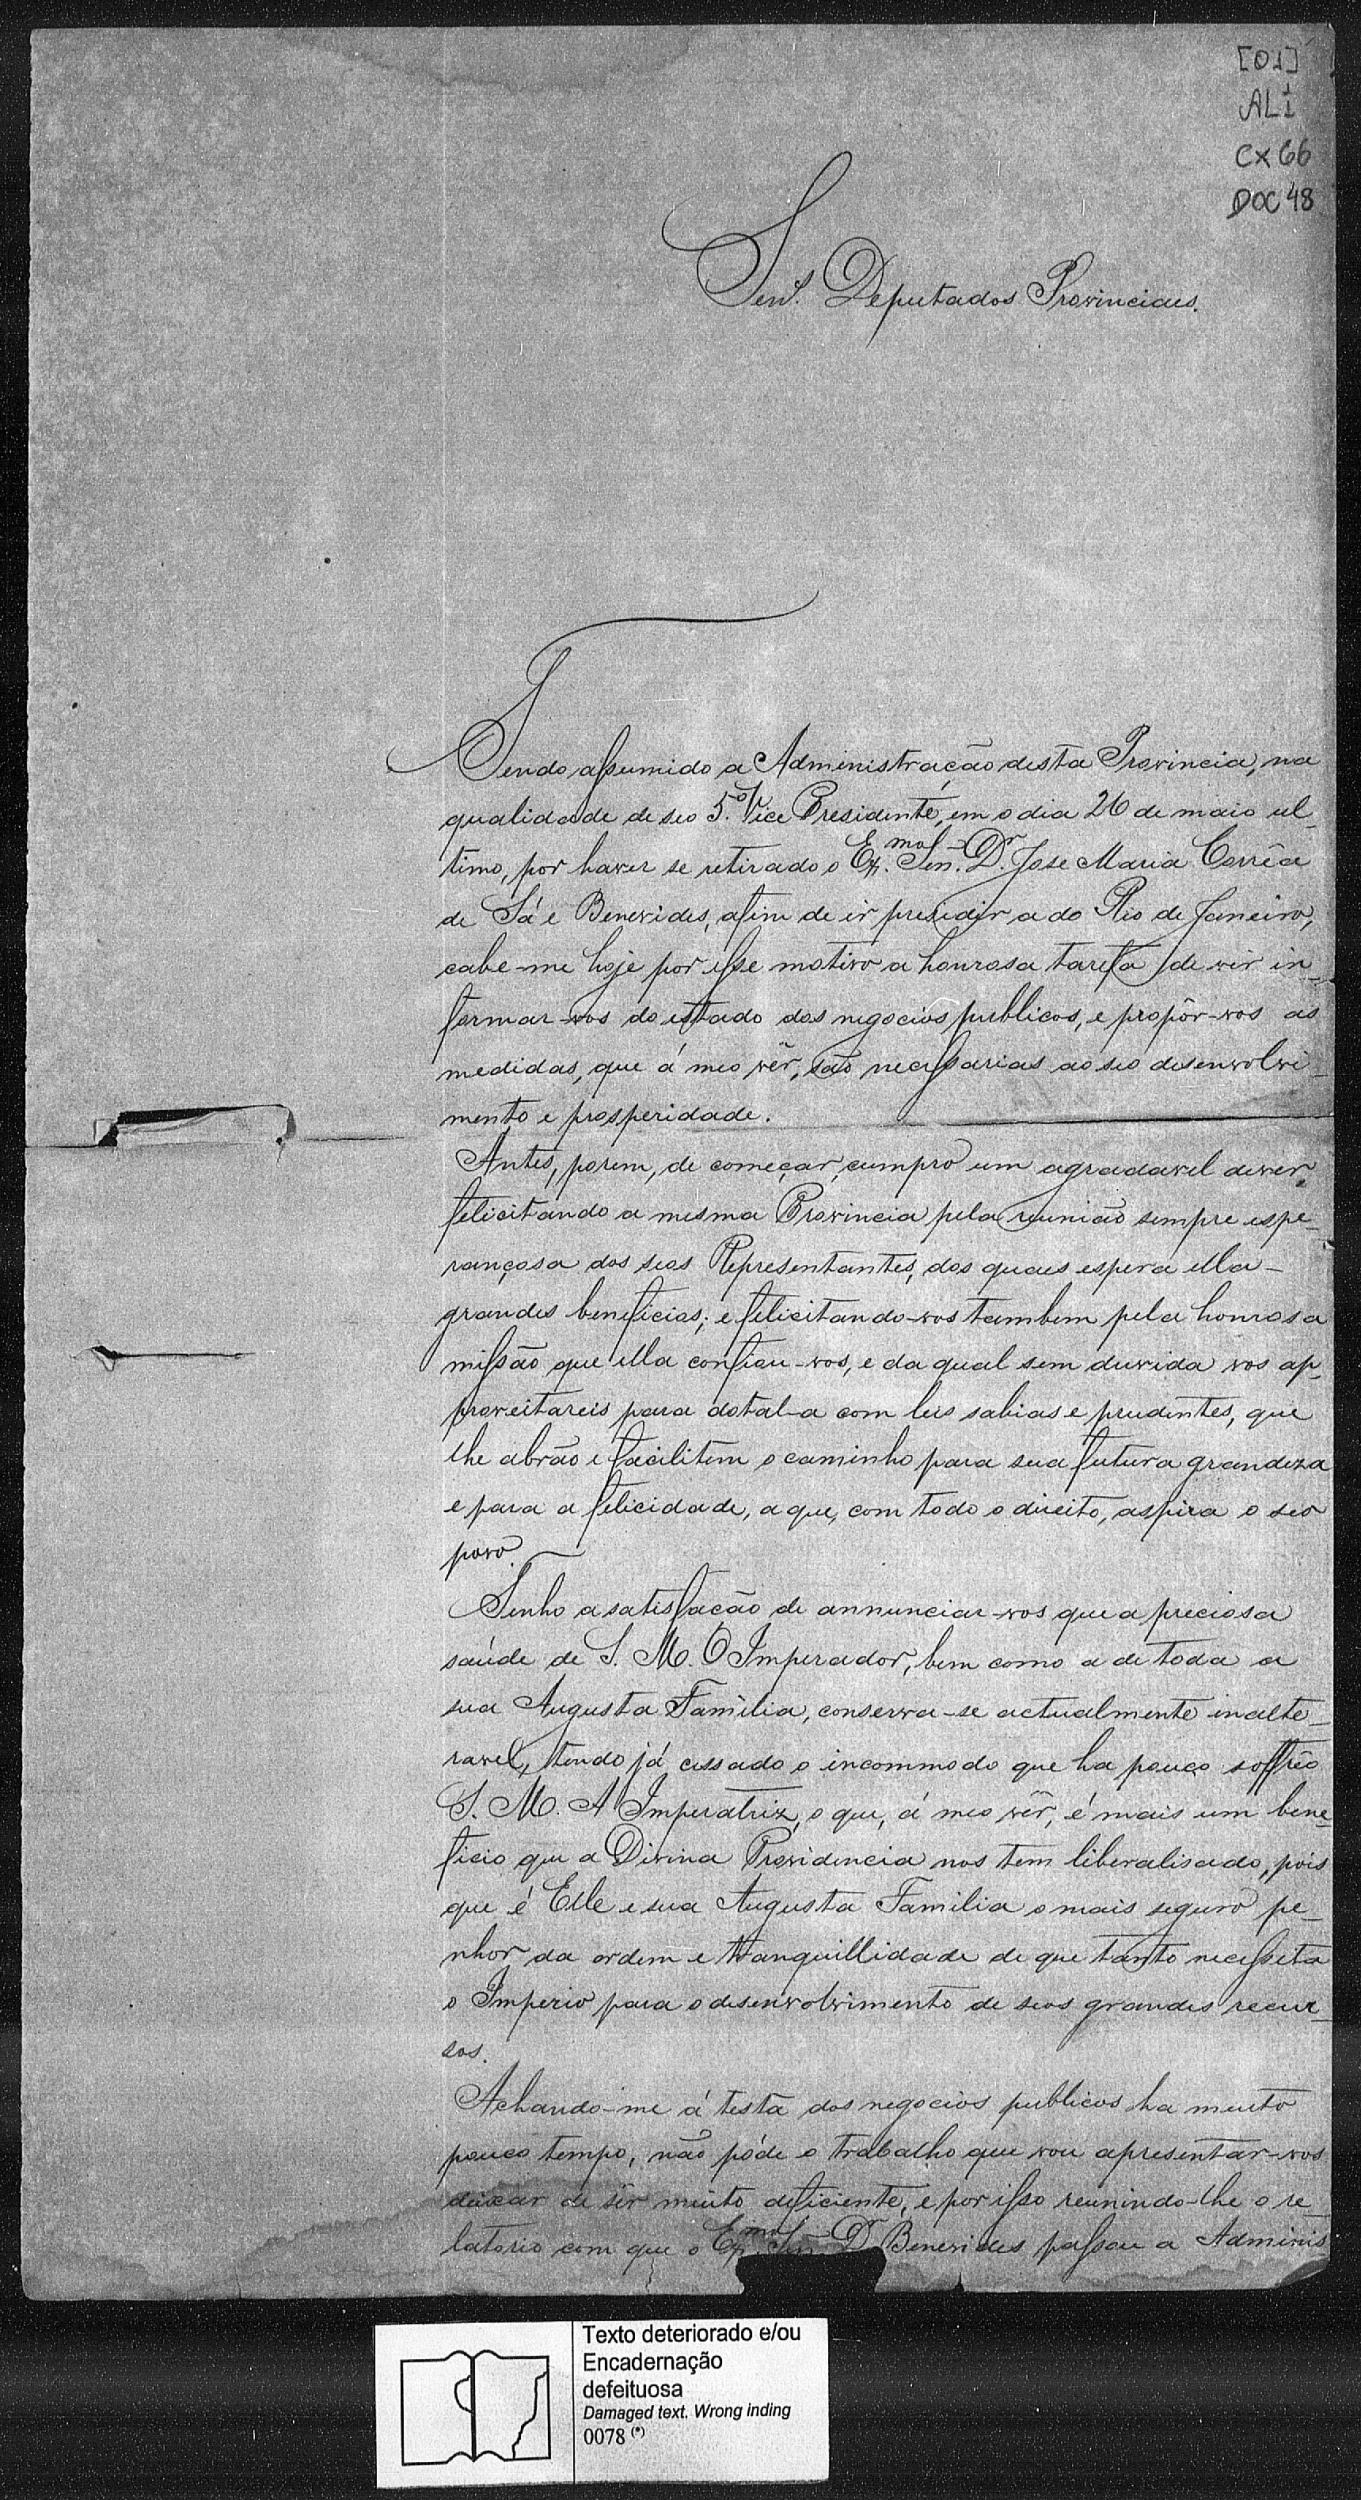 [01]
AL1
CX 66
DOC 48
Senr.s Deputados Provinciaes.
Tendo assumido a Administração desta Provincia, na
qualidade de seo 5.º Vice Presidente, em o dia 26 de maio ul-
timo, por haver se retirado o Ex.mo Senr. Dr. Jose Maria Corrêa
de Sá e Benevides, afim de ir presidir a do Rio de Janeiro,
cabe-me hoje por esse motivo a honrosa tarefa de vir in-
formar-vos do estado dos negocios publicos, e propôr-vos as
medidas, que á meo vêr, são necessarias ao seo desenvolvi-
mento e prosperidade.
Antes, porem, de começar, cumpro um agradavel dever,
felicitando a mesma Provincia pela reunião sempre espe-
rançosa dos seos Representantes, dos quaes espera ella
grandes beneficios; e felicitando-vos tambem pela honrosa
missão que ella confiou-vos, e da qual sem duvida vos ap-
proveitareis para dotal-a com leis sabias e prudentes, que
lhe abrão e facilitem o caminho para sua futura grandeza
e para a felicidade, a que, com todo o direito, aspira o seo
povo.
Tenho a satisfação de annunciar-vos que a preciosa
saúde de S. M. O Imperador, bem como a de toda a
sua Augusta Familia, conserva-se actualmente inalte-
ravel, tendo já cessado o incommodo que ha pouco soffrêo
S. M. A Imperatriz, o que, á meo vêr, é mais um bene-
ficio que a Divina Providencia nos tem liberalisado, pois
que é Elle e sua Augusta Familia o mais seguro pe-
nhor da ordem e tranquillidade de que tanto necesseta
o Imperio para o desenvolvimento de seos grandes recur-
sos.
Achando-me á testa dos negocios publicos ha muito
pouco tempo, não póde o trabalho que vou apresentar-vos
deixar de sêr muito deficiente, e por isso reunindo-lhe o re-
latorio com que o Ex.mo Senr. Dr. Benevides passou a Adminis
Texto deteriorado e/ou
Encadernação
defeituosa
Damaged text. Wrong inding
0078 (*)